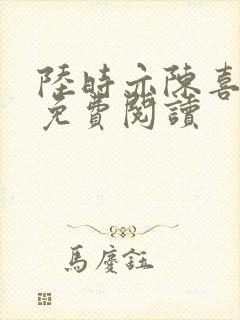 陸時亦陳喜
免費閱讀
馬慶鈺